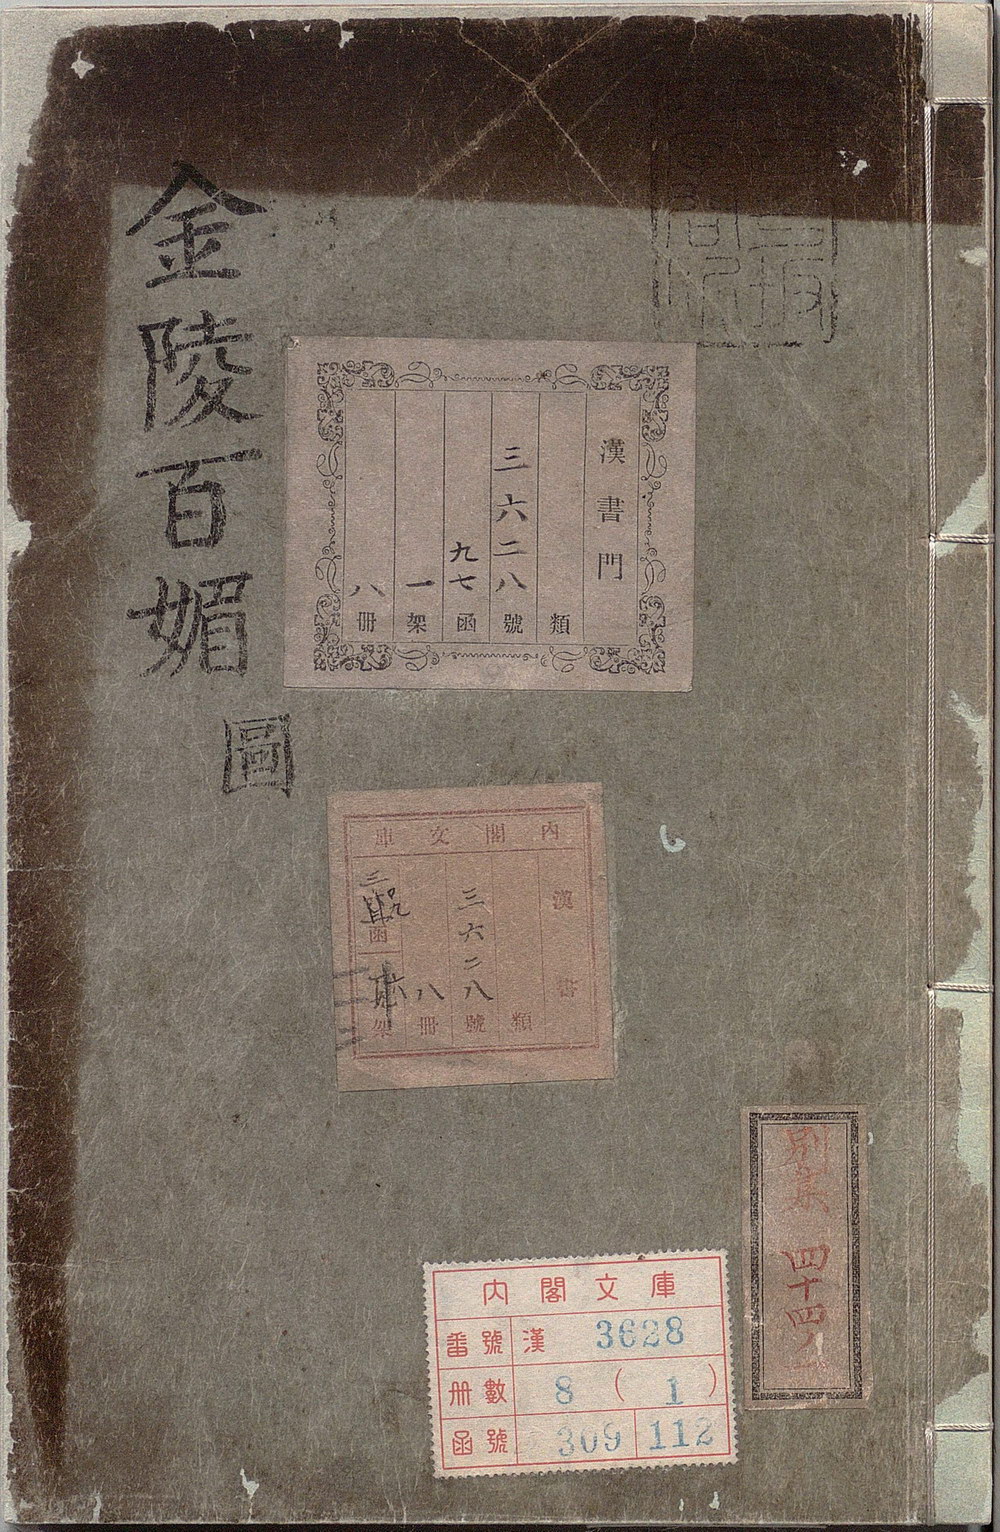 金陵百媚
圖
漢書門
類
三六二八號
九七函
一架
八冊
内閣文庫
漢書
類
三六二八號
八冊
函
架
別集 四十四ノ一
内閣文庫
番號 漢 3628
冊數 8 ( 1 )
函號 309 112